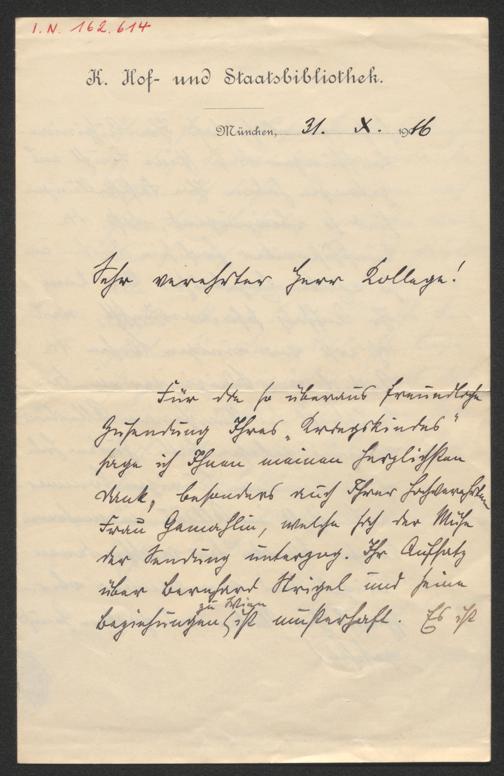 I. N. 162.614
K. Hof- und Staatsbibliothek.
München, 31. X. 1916
Sehr verehrter Herr Kollege!
Für die so überaus freundliche
Zusendung Ihres „Kriegskindes“
sage ich Ihnen meinen herzlichsten
Dank, besonders auch Ihrer hochverehrten
Frau Gemahlin, welche sich der Mühe
der Sendung unterzog. Ihr Aufsatz
über Bernhard Strigel und seine
Beziehungen zu Wien ist musterhaft. Es ist